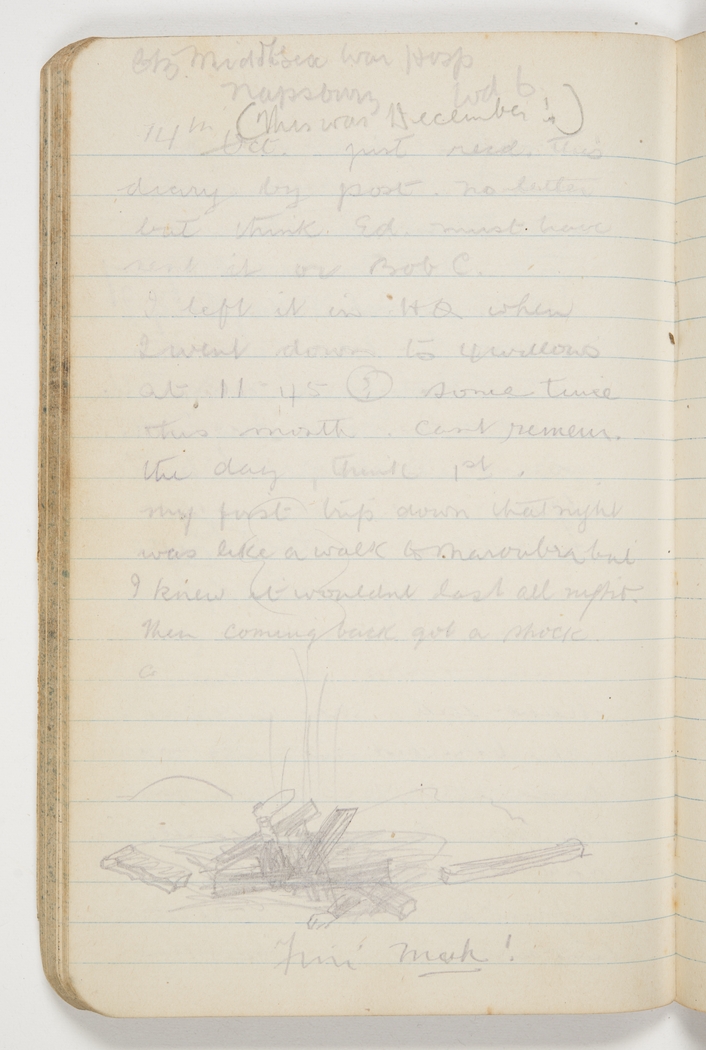 Middlesex War Hosp
Napsbury Wd 6
(This was December!)
14th Oct. just recd. this
diary by post. no letter
but think Ed. must have
sent it or Bob C.
I left it in HQ when
I went down to
at 11-45 (?) some time
this month. Cant remem.
the day, think 1st.
my first trip down that night
was like a walk to Maroubra but
I knew it wouldnt last all night.
Then coming back got a shock.
a
Mark!